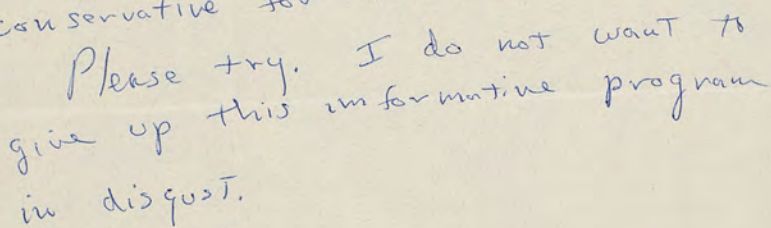 conservative
Please try. I do not want to
give up this informative program
in disgust.